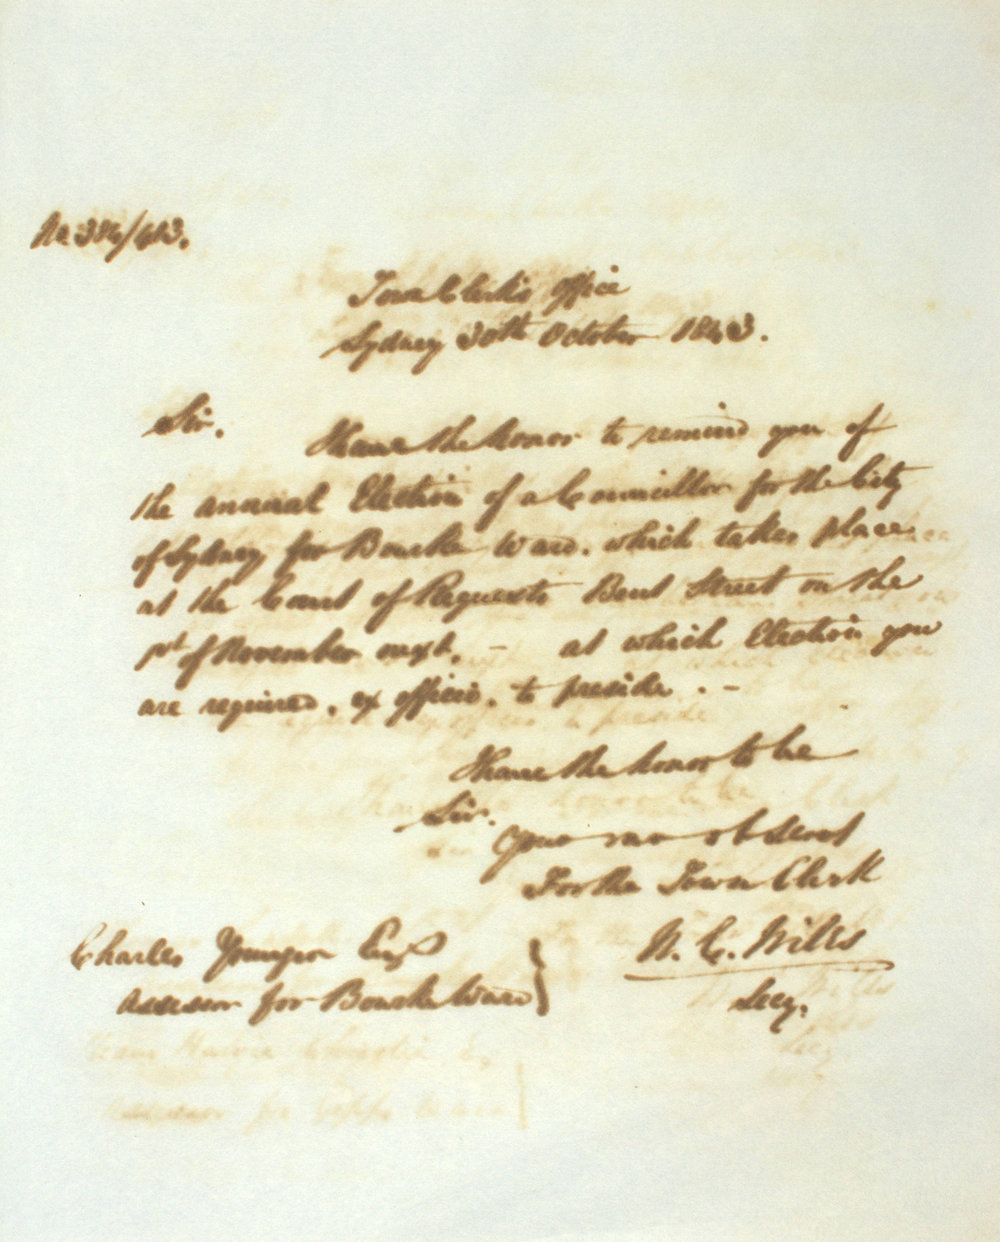 Town Clerk's Office
Sydney 30th October 1843.
Sir.
I have the honor to remind you of
the annual Election of a Councillor for the City
of Sydney for Bourke Ward. which takes place
at the Court of Requests Bent Street on the
1st of November next. - at which Election you
are required, ex officio, to preside. -
I have the honor to be
Sir.
Your obt Servt
For the Town Clerk
W. C. Wills
Secy.
Charles Younger Esq
Assessor for Bourke Ward